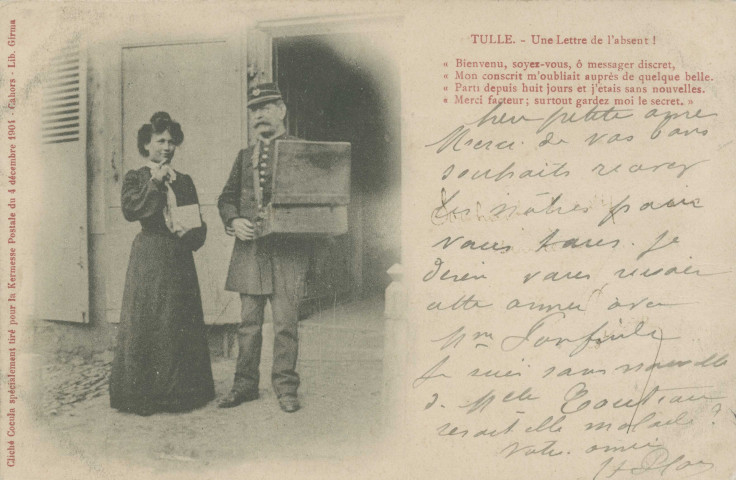 TULLE. - Une Lettre de l'absent !
« Bienvenu, soyez-vous, ô messager discret,
« Mon conscrit m'oubliait auprés de quelque belle.
« Parti depuis huit jours et j'etais sans nouvelles.
« Merci facteur ; surtout gardez moi le secret. »
petite amie
Merci de vos bons
souhaits recevez
les nôtres pour
vous tous. Je
désire vous revoir
cette année avec
Mme
Je suis sans nouvelle
de Melle
serait elle malade ?
Votre amie
Cliché Cocula spécialement tiré pour la Kermesse Postale du 4 décembre 1901 - Cahors - Lib. Girma